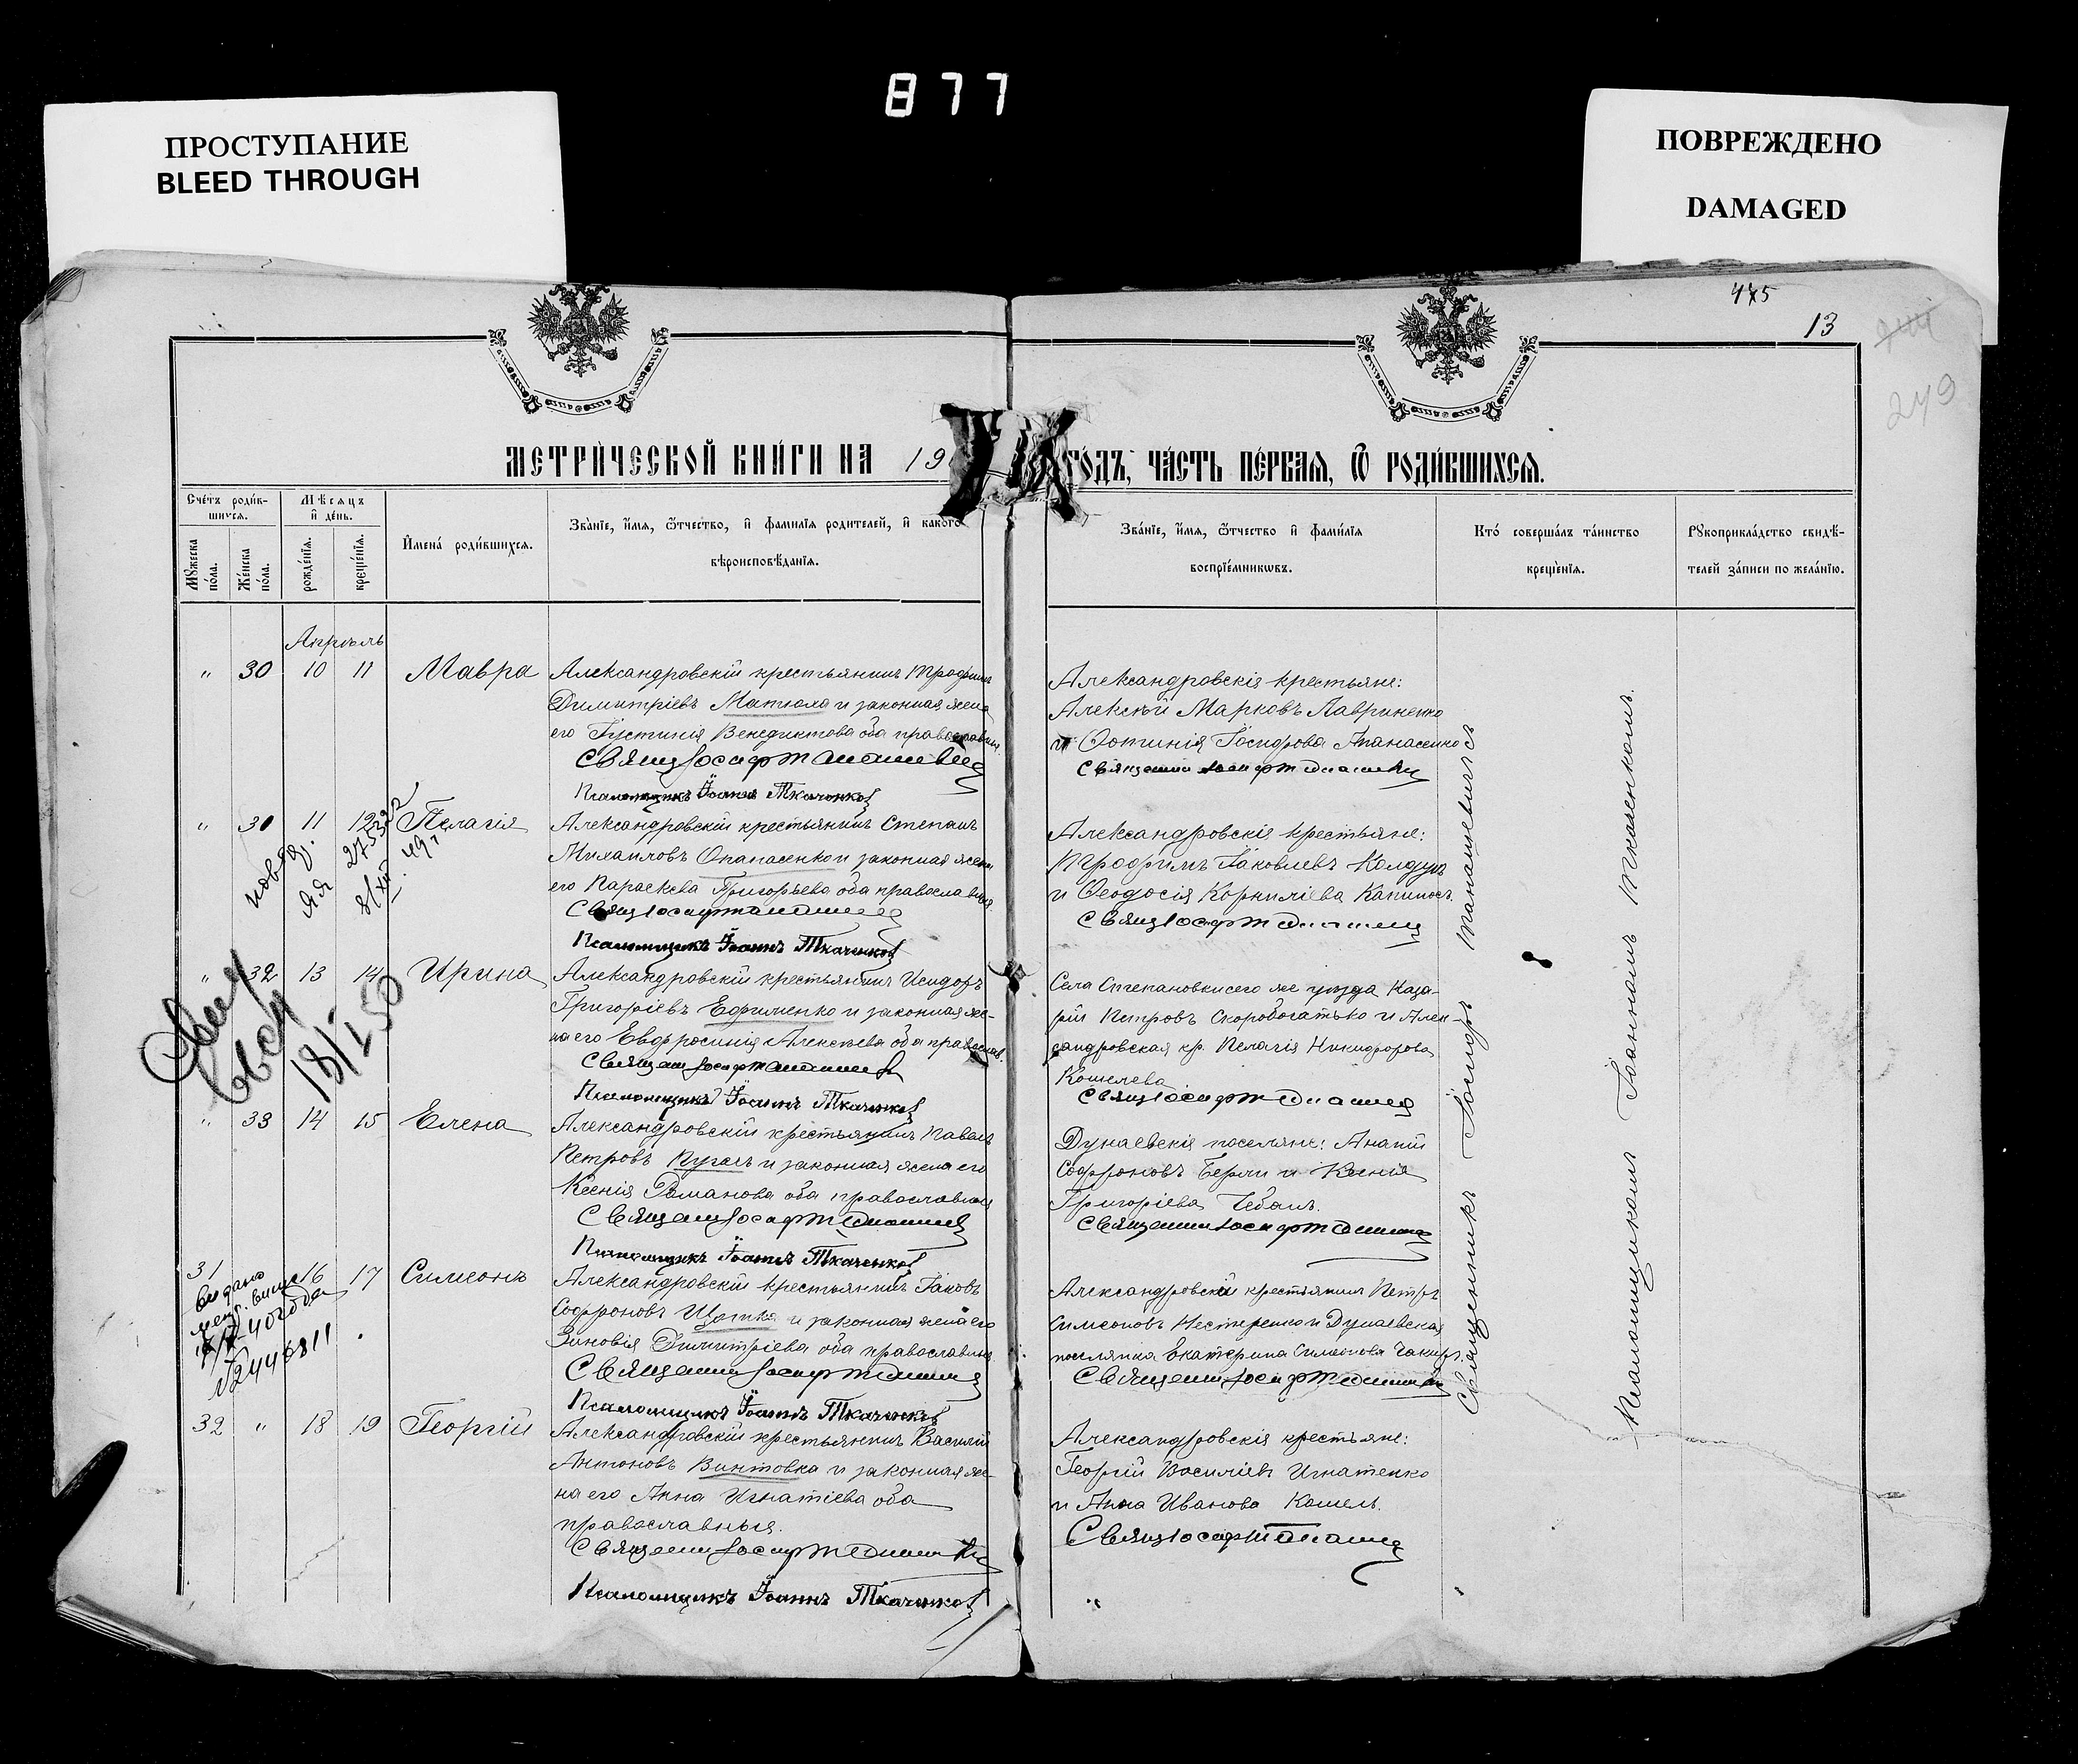 877
ПРОСТУПАНИЕ
BLEED THROUGH
ПОВРЕЖДЕНО
DAMAGED
475
13
249
МЕТРИ́ЧЕСКОЙ КНИ́ГИ НА 19
ГО́ДЪ, ЧА́СТЬ ПЕ́РВАЯ, Ѿ РОДИ́ВШИХСЯ.
Сче́тъ роди́в-
шихся.
Мѣ́сяцъ
и҆ де́нь.
Мꙋ́жеска по́ла.
Же́нска по́ла.
рожде́нїя.
креще́нїя.
И҆мена̀ роди́вшихся.
Зва́нїе, и҆́мя, ѻ҆́тчество, и҆ фами́лїя роди́телей, и҆ како́го
вѣроисповѣ́данїя.
Зва́нїе, и҆́мя, ѻ҆́тчество и҆ фами́лїя
воспрїе́мникѡвъ.
Кто́ соверша́лъ та́инство
креще́нїя.
Рꙋкоприкла́дство свидѣ́-
телей за́писи по жела́нїю.
Апрѣль
" 30 10 11 Мавра
Александровскій крестьянинъ Трофимъ
Димитріевъ Матюха и законная жена
его Іустинія Венедиктова оба православн.
Священ Іосифъ Танашевичъ
Псаломщикъ Іоаннъ Ткаченко
Александровскія крестьяне:
Алексѣй Марковъ Лавриненко
и Фотинія Іосифова Апанасенко
Священни Іосифъ Танашевич
" 31 11 12 Пелагія
Александровскій крестьянинъ Стефанъ
Михаиловъ Опанасенко и законная жена
его Параскева Григорьева оба православныя
Свящ Іосифъ Танашевич
Псаломщикъ Іоаннъ Ткаченко
Александровскія крестьяне:
Трофимъ Іаковлевъ Колдунъ
и Ѳеодосія Корниліева Капиносъ.
Свящ Іосифъ Танашевич
" 32 13 14 Ирина
18/I 50
Александровскій крестьянинъ Исидоръ
Григоріевъ Ефименко и законная же-
на его Евфросинія Алексѣева оба православ.
Священ Іосифъ Танашевич
Псаломщикъ Іоаннъ Ткаченко
Села Степановки сего же уѣзда Наза-
рій Петровъ Скоробогатько и Алек-
сандровская кр. Пелагія Никифорова
Кошелева
Свящ Іосифъ Танашевич
" 33 14 15 Елена
Александровскій крестьянинъ Павелъ
Петровъ Пугачъ и законная жена его
Ксенія Романова оба православныя
Священ Іосифъ Танашевич
Псаломщикъ Іоаннъ Ткаченко
Дунаевскія поселяне: Ананій
Софроновъ Берли и Ксенія
Григоріева Чебанъ.
Священни Іосифъ Танашевич
31 16 17 Симеонъ
выдано
40 года
№ 446811
Александровскій крестьянинъ Іаковъ
Софроновъ Щотка и законная жена его
Зиновія Димитріева оба православныя
Священни Іосифъ Танашевич
Псаломщикъ Іоаннъ Ткаченко
Александровскій крестьянинъ Петръ
Симеоновъ Нестеренко и Дунаевская
поселянка Екатерина Симеонова Чакиръ.
Священни Іосифъ Танашевич
32 " 18 19 Георгій
Александровскій крестьянинъ Василій
Антоновъ Винтовка и законная же-
на его Анна Игнатіева оба
православныя.
Священни Іосифъ Танашевич
Псаломщикъ Іоаннъ Ткаченко
Александровскія крестьяне:
Георгій Василіевъ Игнатенко
и Анна Иванова Кошель.
Свящ Іосифъ Танашевич
Священникъ Іосифъ Танашевичъ съ
Псаломщикомъ Іоанномъ Ткаченкомъ.